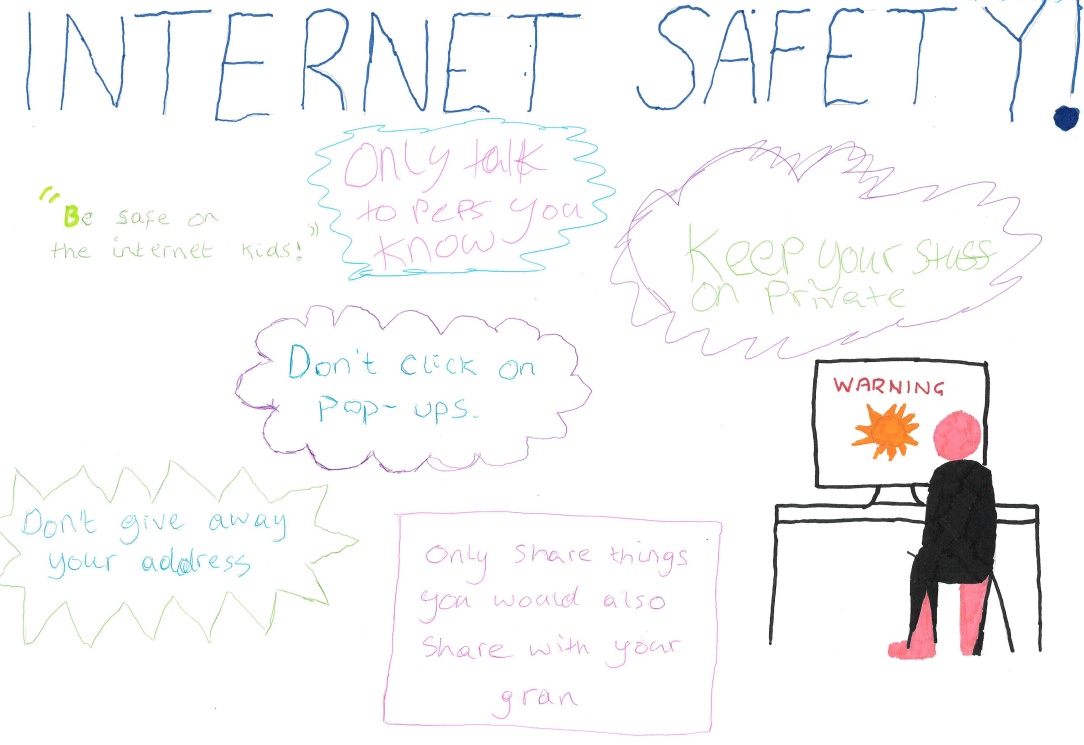 INTERNET SAFETY!
Only talk
to peps you
know
"Be safe on
the internet kids!"
Keep your stuff
on private
Don't click on
pop-ups.
WARNING
Don't give away
your address
Only share things
you would also
share with your
gran